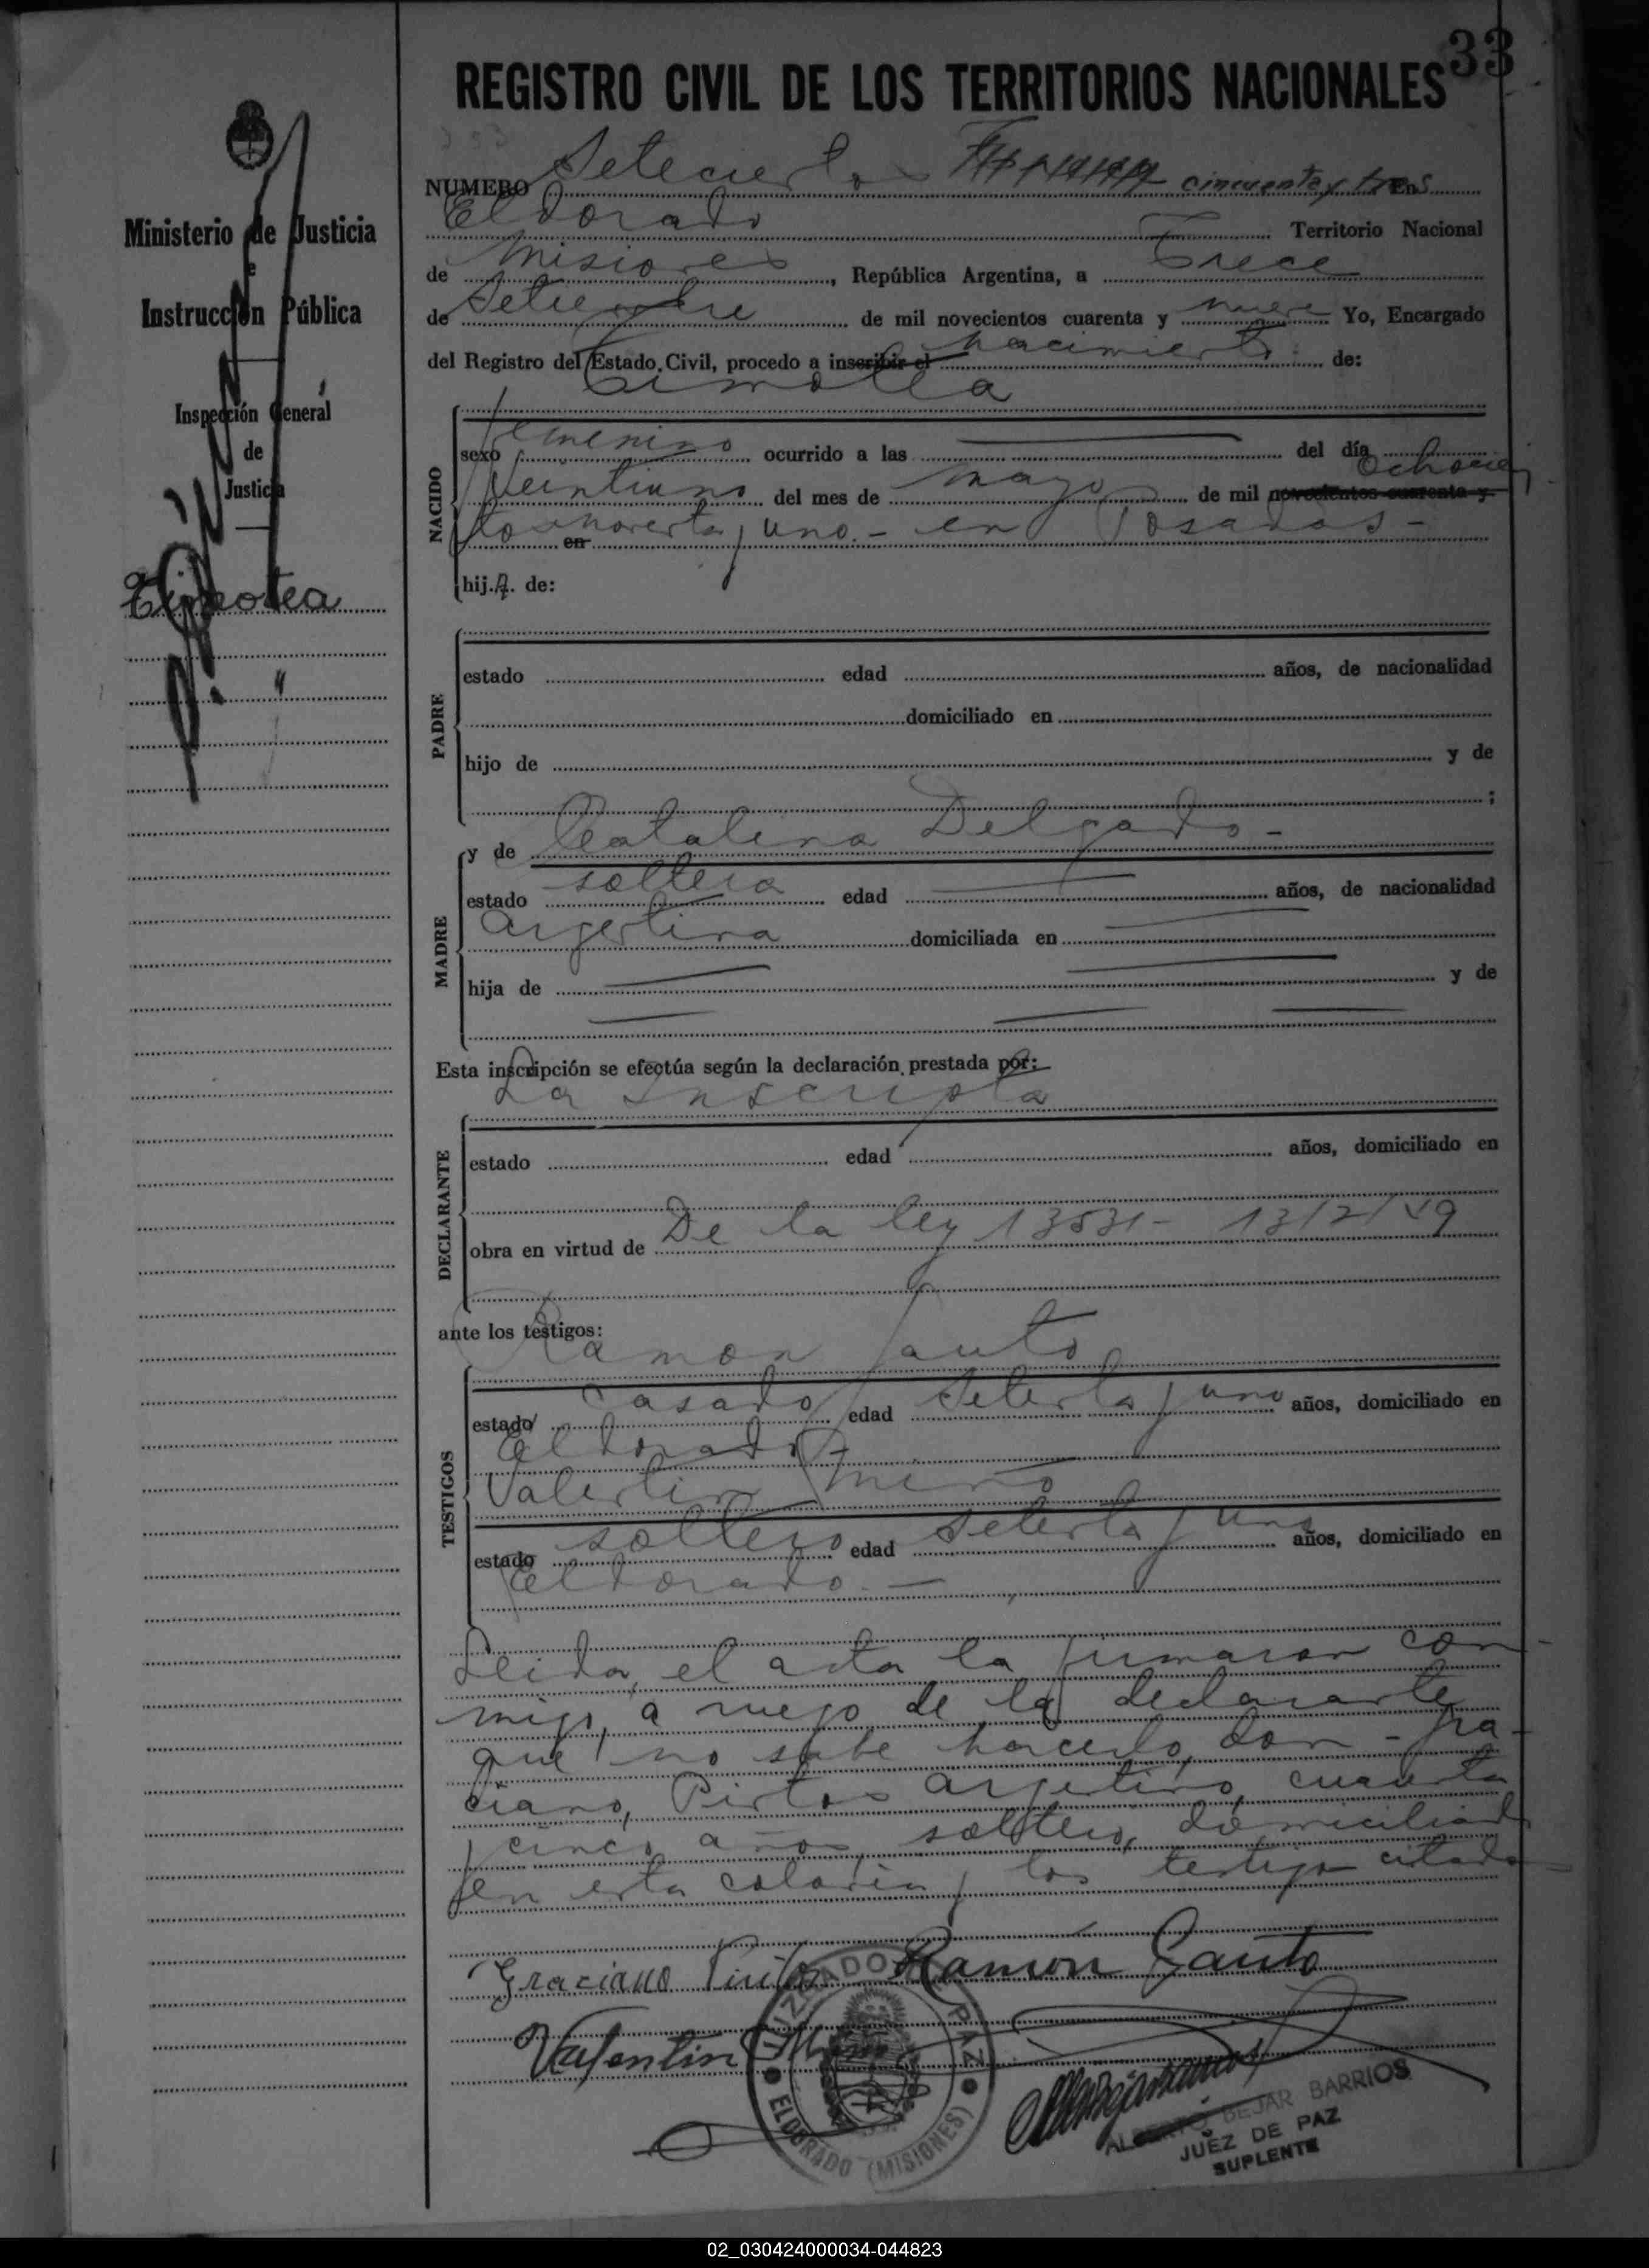 33
REGISTRO CIVIL DE LOS TERRITORIOS NACIONALES
753
NUMERO Setecientos cincuenta y tres En
Eldorado Territorio Nacional
de Misiones, República Argentina, a Trece
de Setiembre de mil novecientos cuarenta y nueve Yo, Encargado
del Registro del Estado Civil, procedo a inscribir el nacimiento de:
Timotea
NACIDO
sexo femenino ocurrido a las del día
Veintiuno del mes de mayo de mil novecientos cuarenta y ochocien
tos noventa y uno.- en Posadas -
en
hij.A. de:
PADRE
estado edad años, de nacionalidad
domiciliado en
hijo de y de
;
MADRE
y de Catalina Delgado -
estado soltera edad años, de nacionalidad
argentina domiciliada en
hija de y de
Esta inscripción se efectúa según la declaración prestada por:
La Inscripta
DECLARANTE
estado edad años, domiciliado en
obra en virtud de De la ley 13531- 13/2/49
ante los testigos:
Ramon Gauto
TESTIGOS
estado casado edad setenta y uno años, domiciliado en
Eldorado
Valentin Miño
estado soltero edad setenta y uno años, domiciliado en
Eldorado.-
Leida el acta la firmaron con-
migo, a ruego de la declarante
que no sabe hacerlo, don - Gra-
ciano, Pintos argentino, cuarenta
y cinco años, soltero, domiciliado
en esta colonia y los testigos citados
Graciano Pintos Ramón Gauto
Valentin Miño
JUZGADO DE PAZ
ELDORADO (MISIONES)
ALBERTO BEJAR BARRIOS
JUEZ DE PAZ
SUPLENTE
Ministerio de Justicia
e
Instrucción Pública
Inspección General
de
Justicia
Timotea
02_030424000034-044823